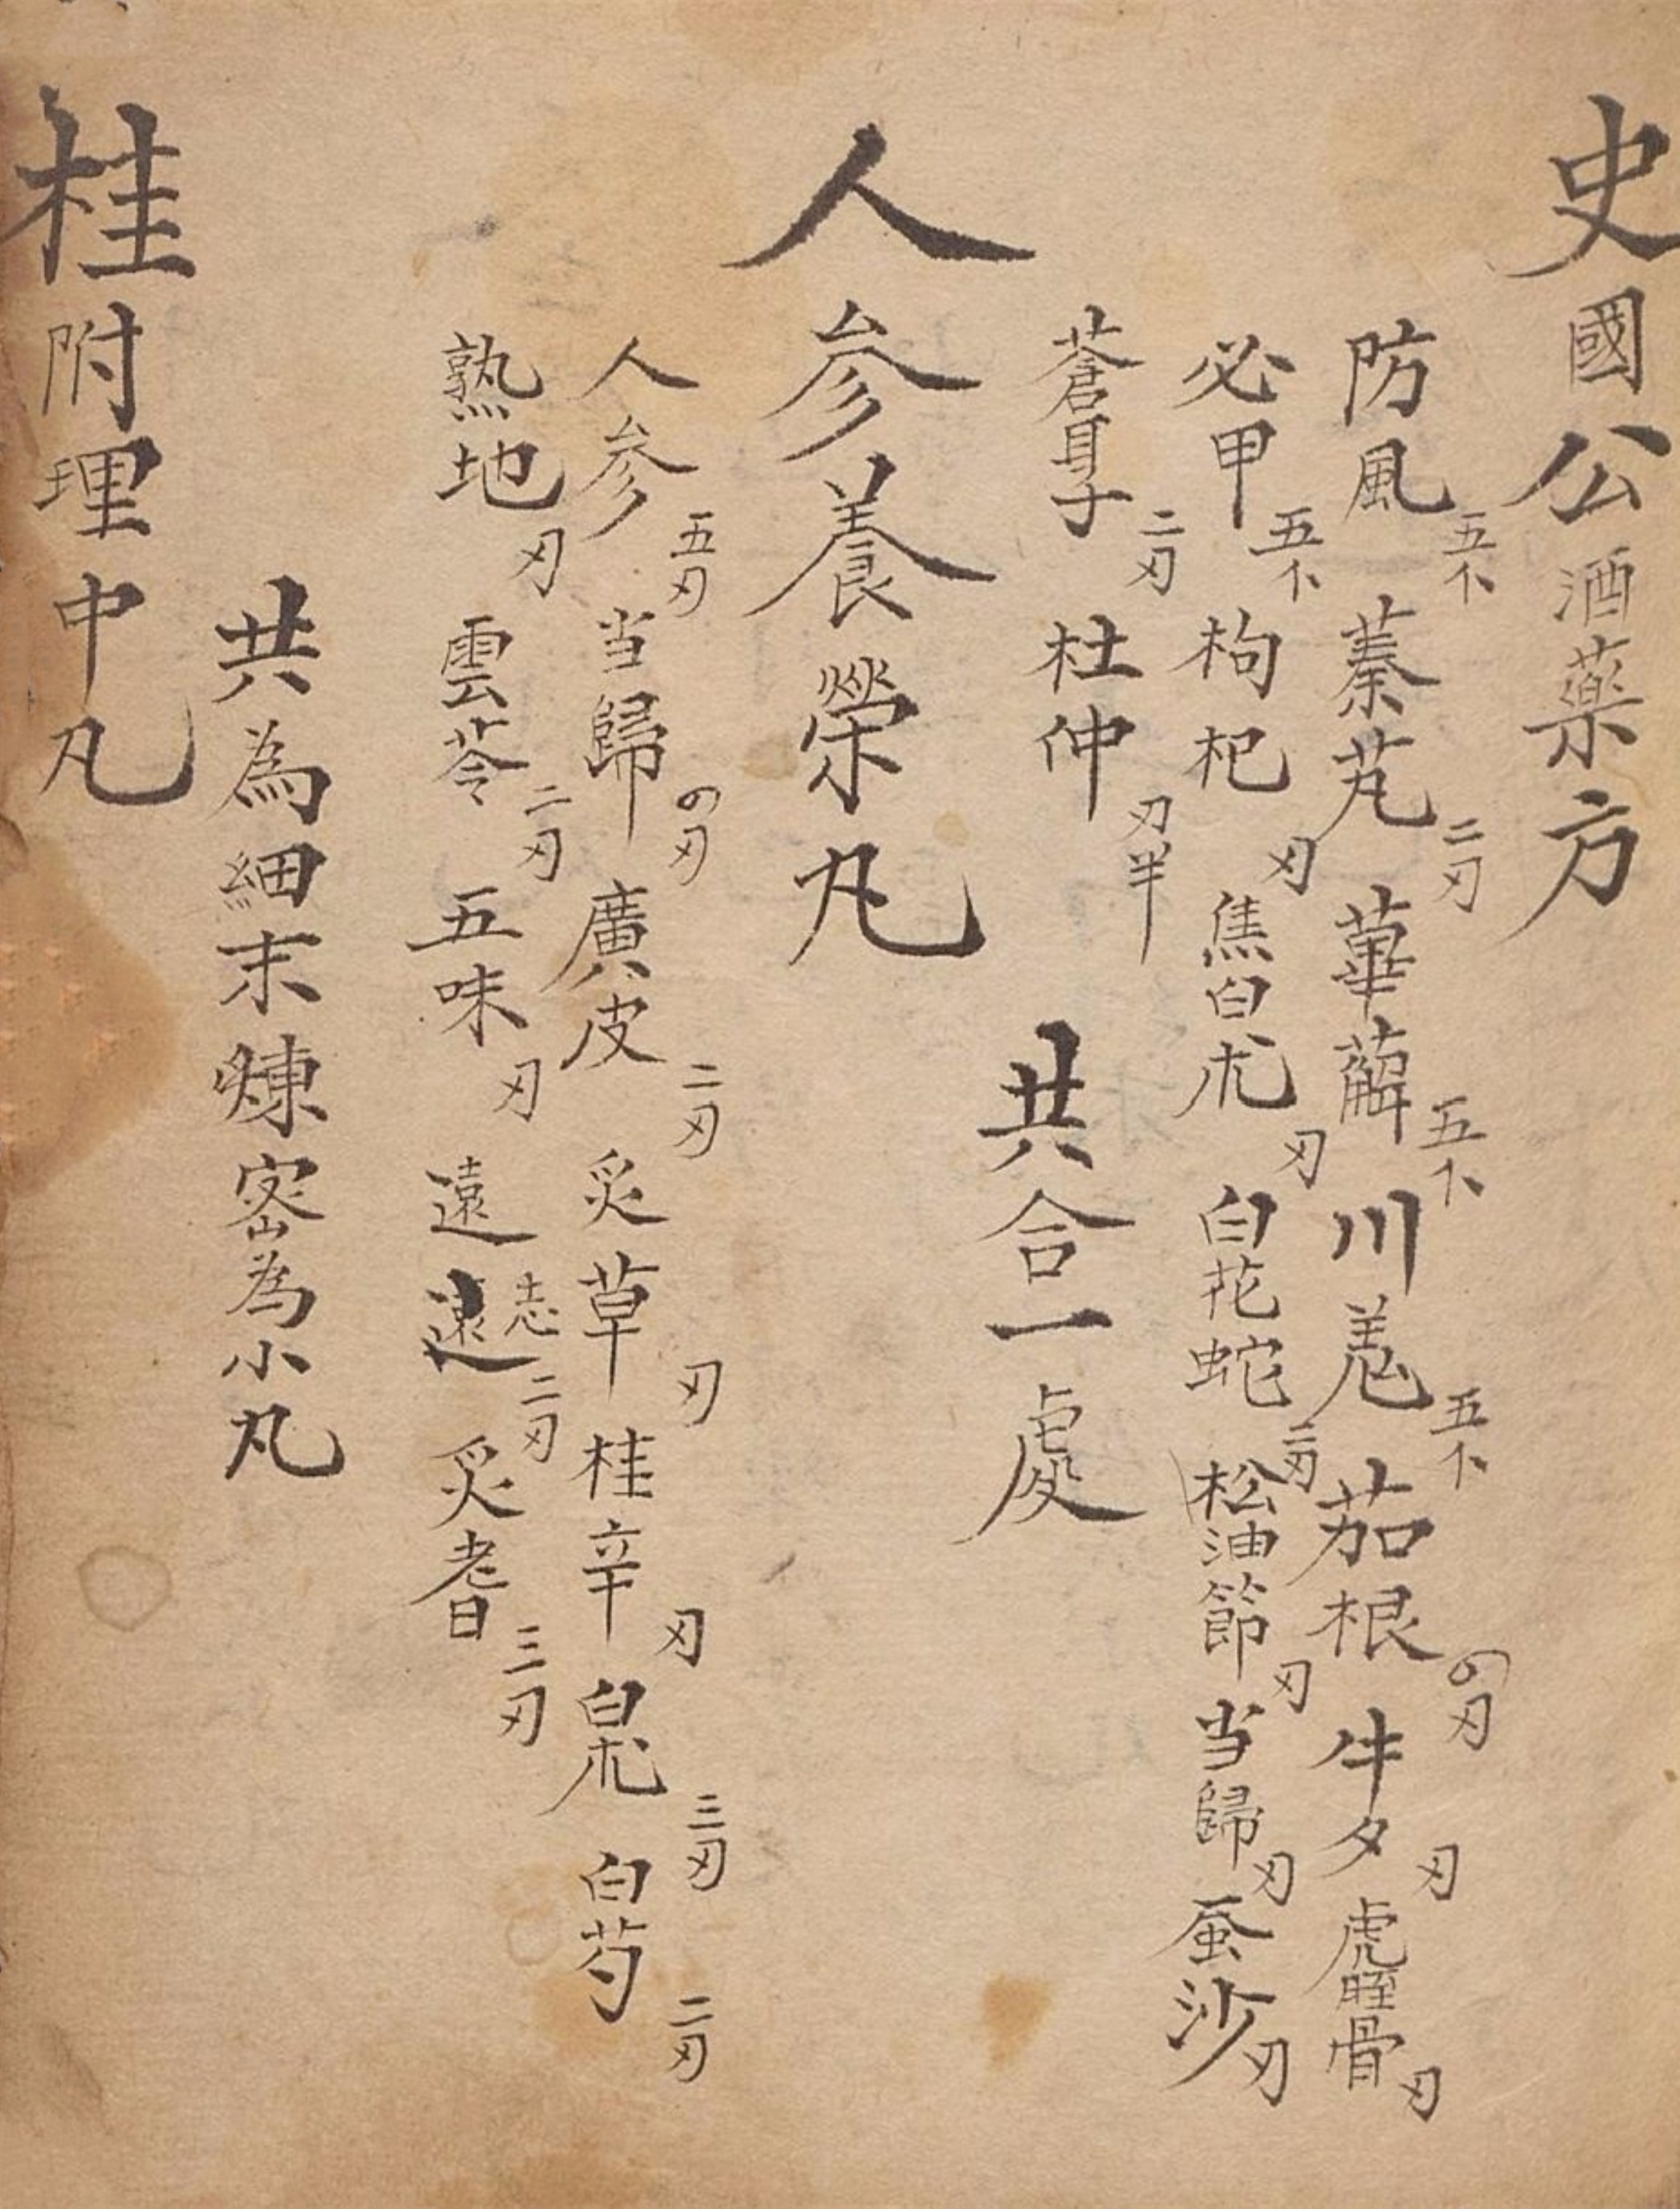 史國公酒藥方
防風五卜 蓁芃二刃 萆薢五卜 川羗五卜 茄根の刃 牛夕刃 虎脛骨刃
必甲五卜 枸杞刃 焦白朮刃 白花蛇二刃 松油節刃 当歸刃 蚕沙刃
蒼耳子二刃 杜仲刃半 共合一處
人参養榮丸
人参五刃 当歸の刃 廣皮二刃 炙草刃 桂辛刃 白朮三刃 白芍二刃
熟地刃 雲苓二刃 五味刃 遠志二刃 炙耆三刃
共為細末煉宻為小丸
桂附理中丸